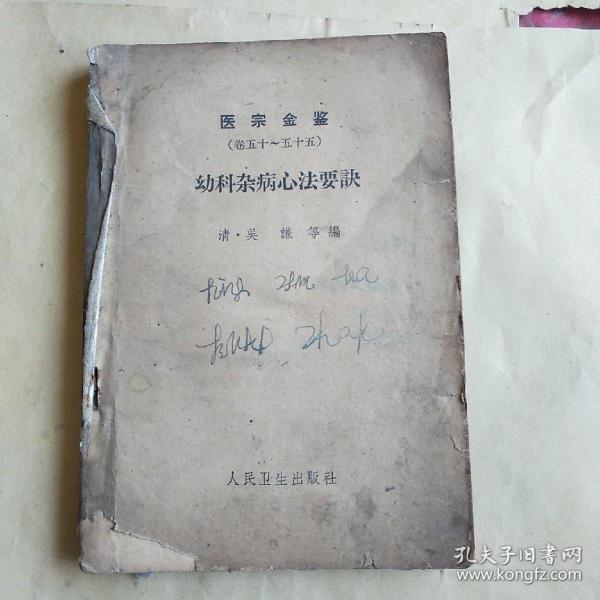 医宗金鉴
（卷五十～五十五）
幼科杂病心法要訣
清·吴謙等編
人民卫生出版社
孔夫子旧書网
www.kongfz.com